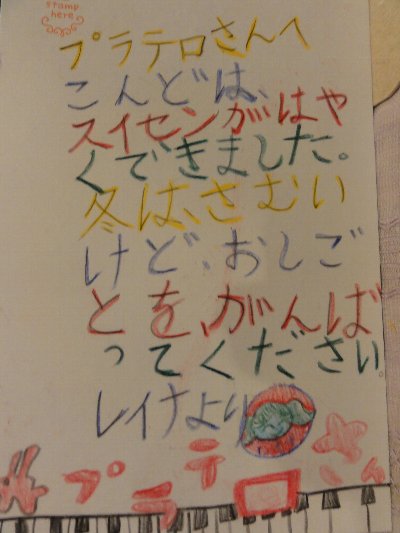 stamp
here
プラテロさんへ
こんどは、
スイセンがはや
くできました。
冬は、さむい
けど、おしご
とを、がんば
ってください。
レイナより
プラテロ